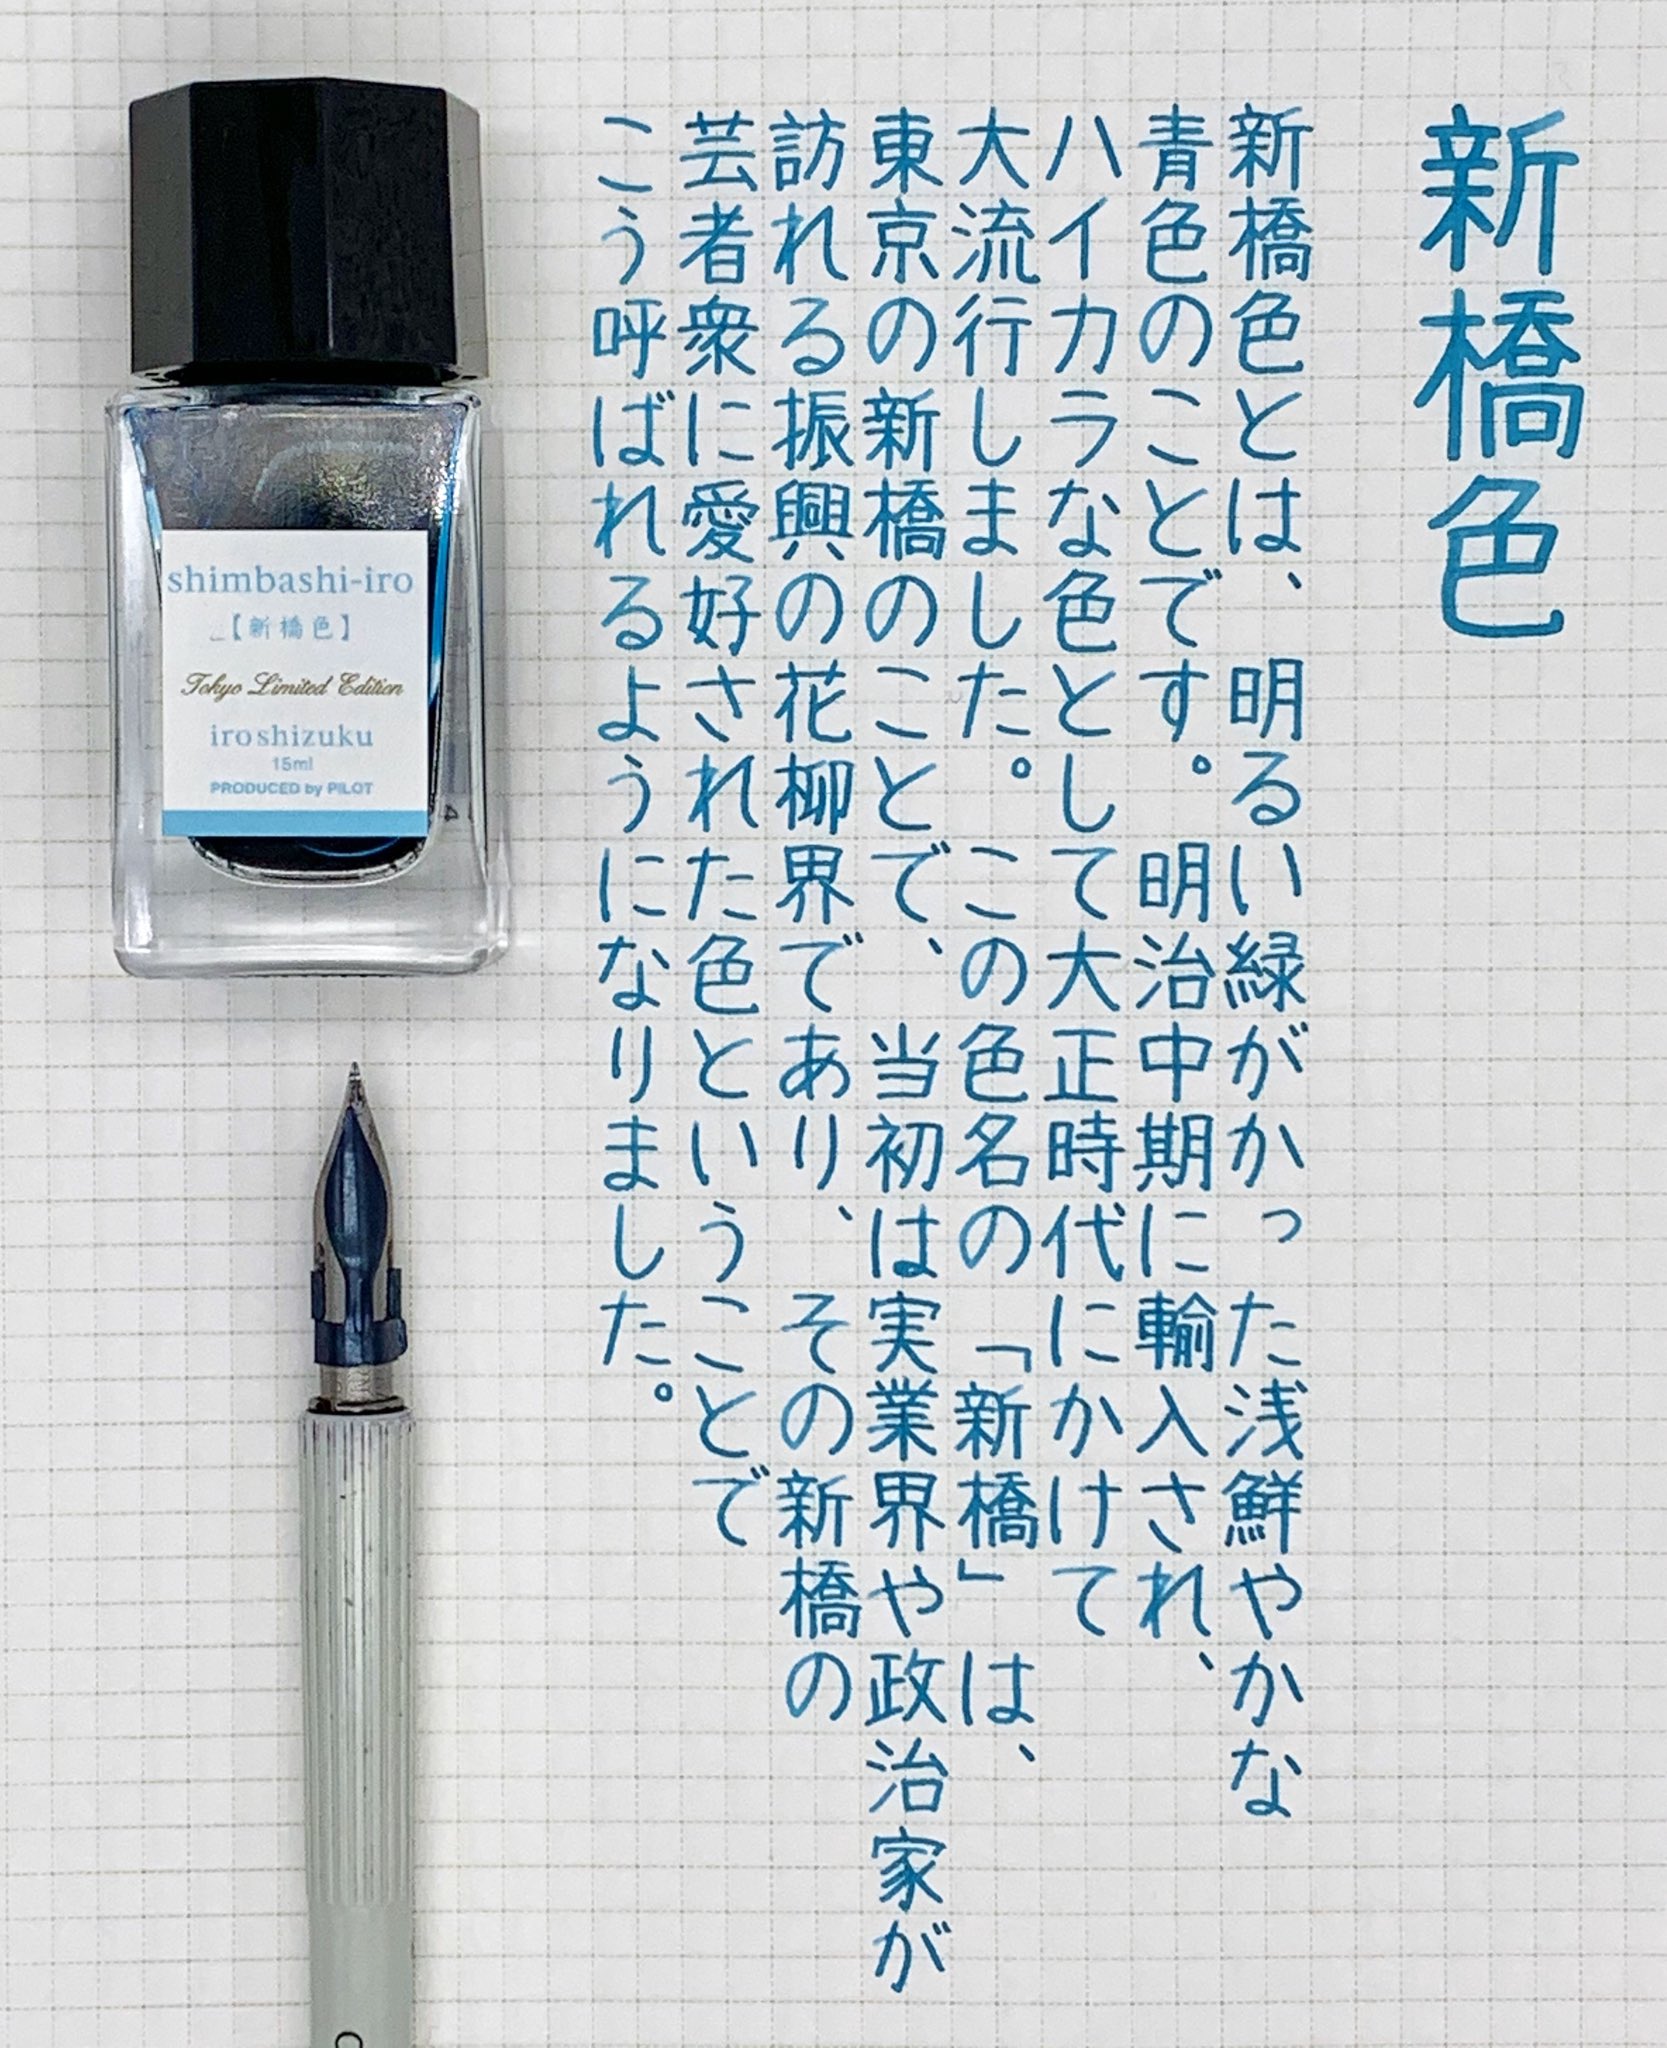 新橋色
新橋色とは、明るい緑がかった浅鮮やかな
青色のことです。明治中期に輸入され、
ハイカラな色として大正時代にかけて
大流行しました。この色名の「新橋」は、
東京の新橋のことで、当初は実業界や政治家が
訪れる振興の花柳界であり、その新橋の
芸者衆に愛好された色ということで
こう呼ばれるようになりました。
shimbashi-iro
【新橋色】
Tokyo Limited Edition
iroshizuku
15ml
PRODUCED by PILOT